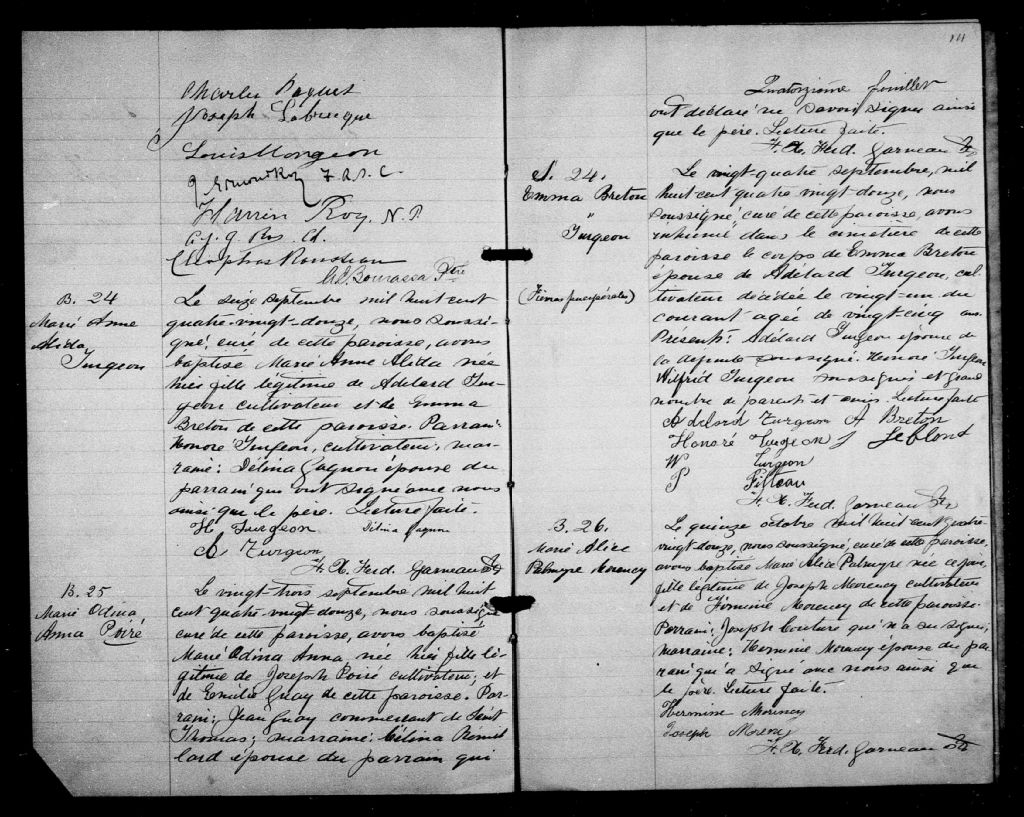 Charles Paquet
Joseph Labrecque
Louis Mongeon
J Edmond Roy F.R.S.C.
Roy, N.P.
Ch.
Cleophas Rousseau
Bourassa Ptre
B. 24
Marie Anne
Alida
Turgeon
Le seize septembre mil huit cent
quatre-vingt-douze, nous soussi-
gné, curé de cette paroisse, avons
baptisé Marie Anne Alida née
hier fille légitime de Adélard Tur-
geon cultivateur et de Emma
Breton de cette paroisse. Parrain:
Honoré Turgeon, cultivateur; mar-
raine: Délina Gagnon épouse du
parrain qui ont signé avec nous
ainsi que le père. Lecture faite.
H. Turgeon Délina Gagnon
A Turgeon
F. X. Ferd. Garneau
B. 25
Marie Odina
Anna Poiré
Le vingt-trois septembre mil huit
cent quatre vingt-douze, nous soussigné
curé de cette paroisse, avons baptisé
Marie Odina Anna née hier fille lé-
gitime de Joseph Poiré cultivateur, et
de Emilie Guay de cette paroisse. Par-
rain: Jean Guay commerçant de Saint
Thomas; marraine: Célina
lard épouse du parrain qui
111
Quatorzième feuillet
ont déclaré ne savoir signer ainsi
que le père. Lecture faite.
F. X. Ferd. Garneau
S. 24.
Emma Breton
"
Turgeon
(Fièvres puerpérales)
Le vingt-quatre septembre, mil
huit cent quatre vingt-douze, nous
soussigné, curé de cette paroisse, avons
inhumé dans le cimetière de cette
paroisse le corps de Emma Breton
épouse de Adélard Turgeon, cul-
tivateur décédée le vingt-un du
courant agée de vingt-cinq ans.
Présents: Adélard Turgeon époux de
la défunte soussigné. Honoré Turgeon
Wilfrid Turgeon soussignés et grand
nombre de parents et amis. Lecture faite
Adelard Turgeon A Breton
Honoré Turgeon J Leblond
W Turgeon
P Filteau
F. X. Ferd. Garneau
B. 26.
Marie Alice
Palmyre Morency
Le quinze octobre mil huit cent quatre-
vingt douze, nous soussigné, curé de cette paroisse,
avons baptisé Marie Alice Palmyre née ce jour,
fille légitime de Joseph Morency cultivateur
et de Morency de cette paroisse.
Parrain: Joseph Couture qui n'a su signer;
marraine: Herminie Morency épouse du par-
rain qui a signé avec nous ainsi que
le père. Lecture faite.
Hermine Morency
Joseph Morency
F. X. Ferd. Garneau